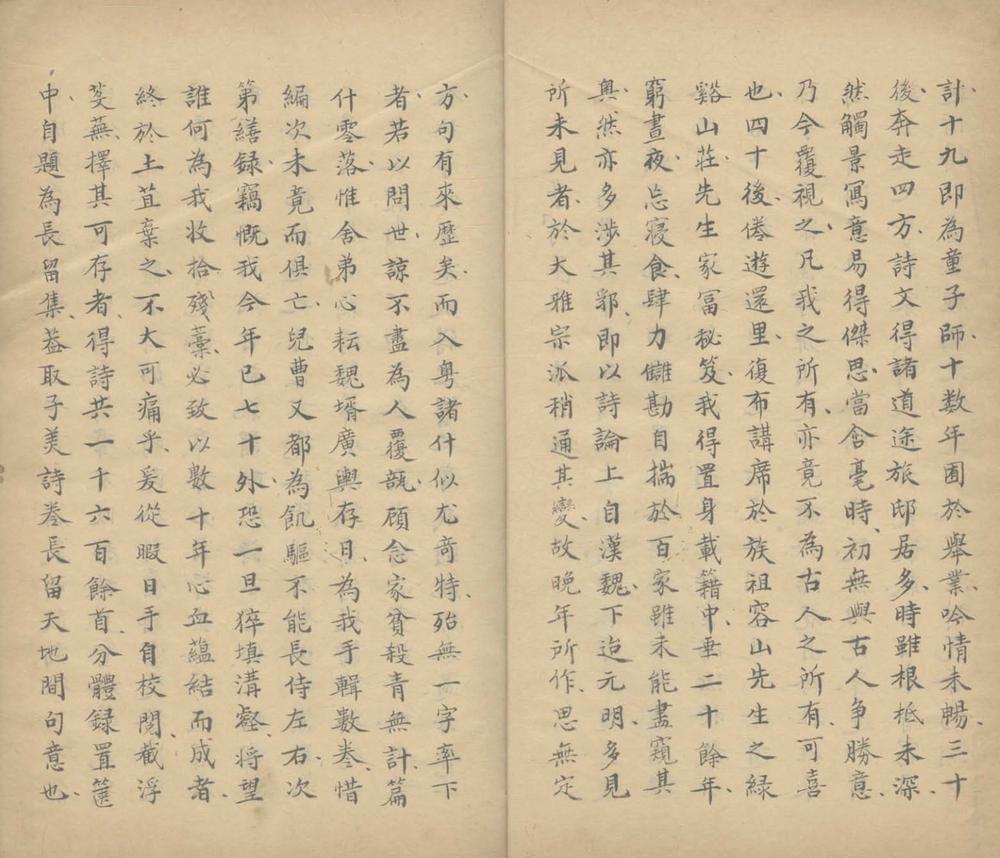 計十九即為童子師十数年囿於舉業吟情未暢三十
後奔走四方詩文得諸道途旅邸居多時雖根柢未深
然觸景寫意易得傑思當含毫時初無與古人争勝意
乃今覆視之凡我之所有亦竟不為古人之所有可喜
也四十後倦遊還里復布講席於族祖容山先生之緑
谿山莊先生家富秘笈我得置身載籍中垂二十餘年
窮晝夜忘寢食肆力讎勘自揣於百家雖未能盡窺其
奥然亦多涉其郛即以詩論上自漢魏下迨元明多見
所未見者於大雅宗派稍通其變故晚年所作思無定
方句有來歷矣而入粤諸什似尤奇特殆無一字率下
者若以問世諒不盡為人覆瓿顧念家貧殺青無計篇
什零落惟舍弟心耘魏壻廣輿存日為我手輯數卷惜
編次未竟而俱亡兒曹又都為飢驅不能長侍左右次
第繕録竊慨我今年已七十外恐一旦猝填溝壑将望
誰何為我收拾殘藁必致以數十年心血蘊結而成者
終於土苴棄之不大可痛乎爰從暇日手自校閲截浮
芟蕪擇其可存者得詩共一千六百餘首分體録置篋
中自題為長留集葢取子美詩卷長留天地間句意也